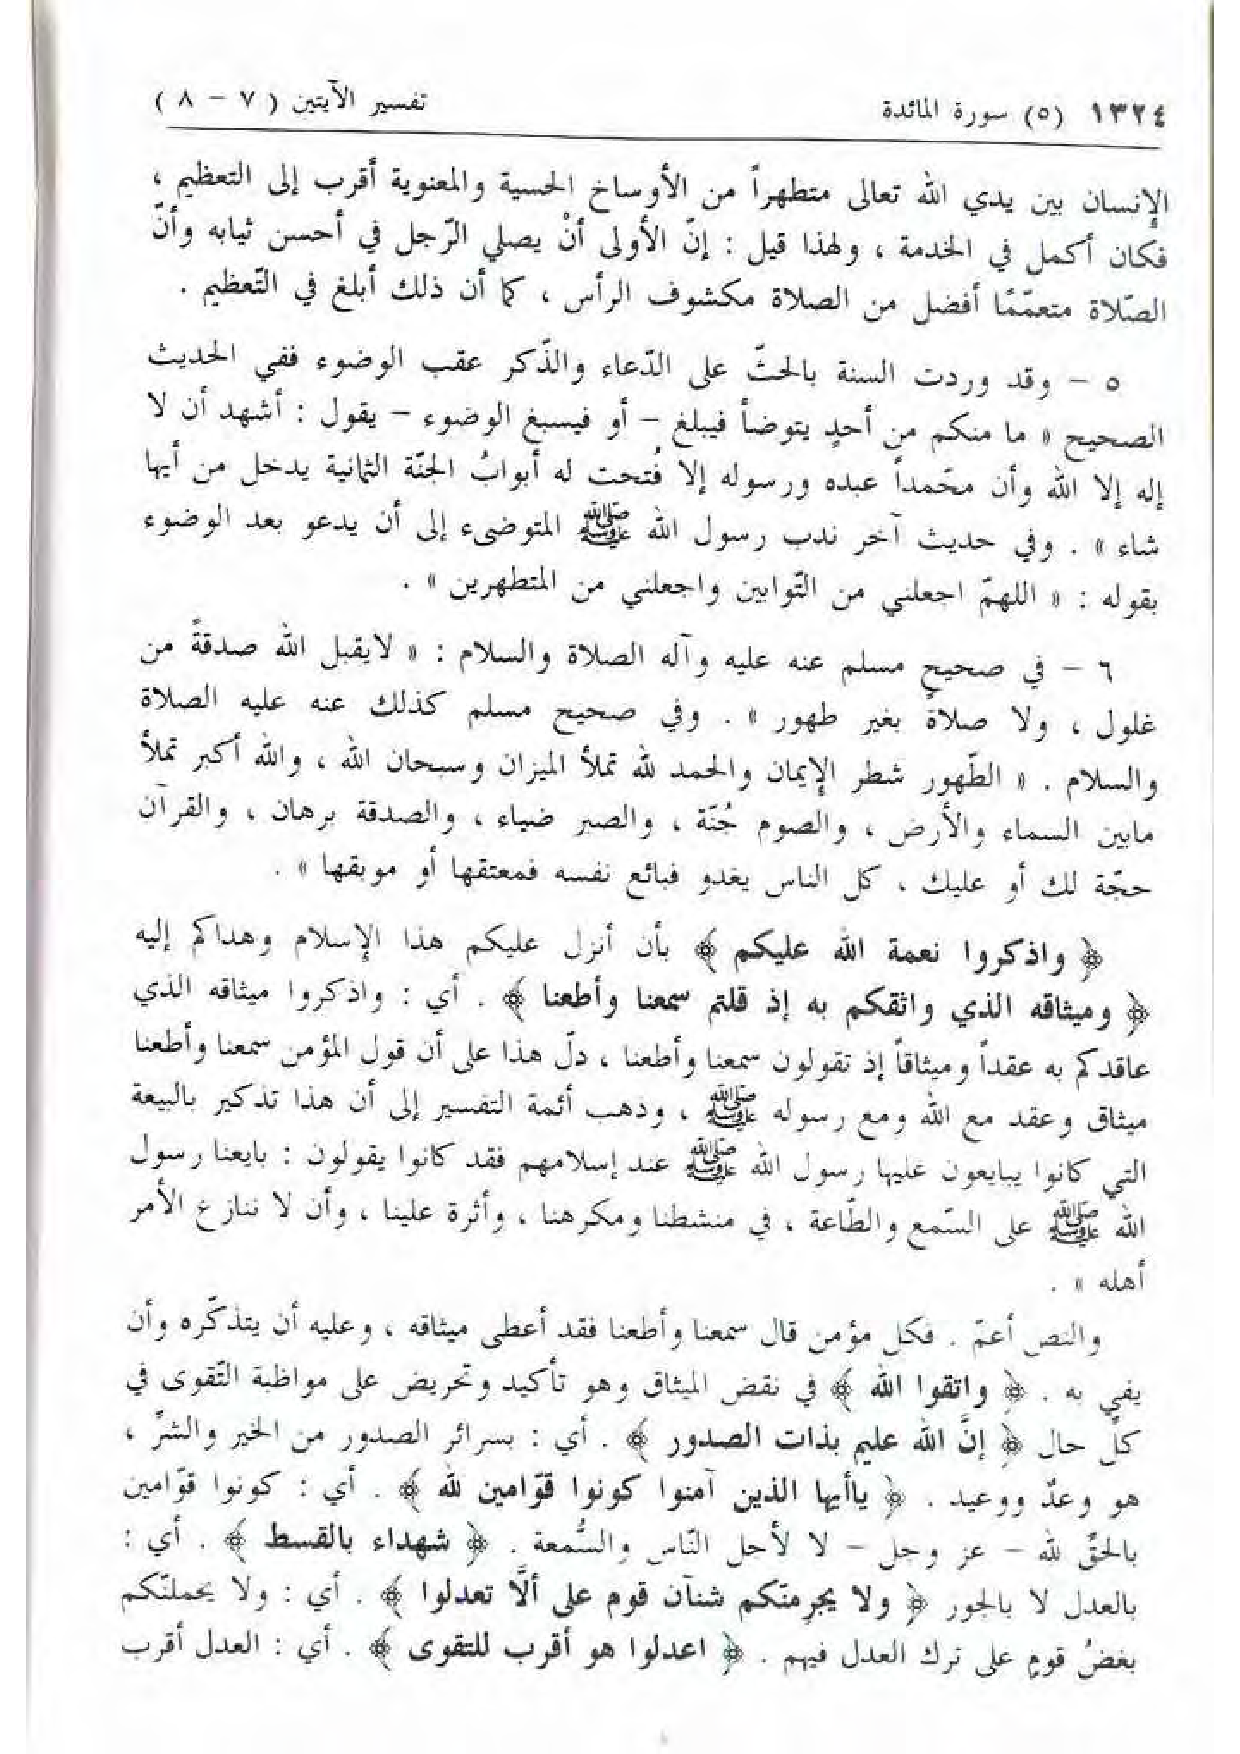 ١٣٢٤ (٥) سورة المائدة تفسير الآيتين ( ٧ – ٨ )
الإِنسان بين يدي الله تعالى متطهراً من الأوساخ الحسية والمعنوية أقرب إلى التعظيم ،
فكان أكمل في الخدمة ، ولهذا قيل : إنّ الأولى أنْ يصلي الرّجل في أحسن ثيابه وأنّ
الصّلاة متعمّمًا أفضل من الصلاة مكشوف الرأس ، كما أن ذلك أبلغ في التّعظيم .
٥ – وقد وردت السنة بالحثّ على الدّعاء والذّكر عقب الوضوء ففي الحديث
الصحيح « ما منكم من أحدٍ يتوضأ فيبلغ – أو فيسبغ الوضوء – يقول : أشهد أن لا
إله إلا الله وأن محّمداً عبده ورسوله إلا فُتحت له أبوابُ الجنّة الثمانية يدخل من أيها
شاء » . وفي حديث آخر ندب رسول الله ﷺ المتوضىء إلى أن يدعو بعد الوضوء
بقوله : « اللهمّ اجعلني من التّوابين واجعلني من المتطهرين » .
٦ – في صحيح مسلم عنه عليه وآله الصلاة والسلام : « لايقبل الله صدقةً من
غلول ، ولا صلاةً بغير طهور » . وفي صحيح مسلم كذلك عنه عليه الصلاة
والسلام . « الطّهور شطر الإِيمان والحمد لله تملأ الميزان وسبحان الله ، والله أكبر تملأ
مابين السماء والأرض ، والصوم جُنّة ، والصبر ضياء ، والصدقة برهان ، والقرآن
حجّة لك أو عليك ، كل الناس يغدو فبائع نفسه فمعتقها أو موبقها » .
﴿ واذكروا نعمة الله عليكم ﴾ بأن أنزل عليكم هذا الإِسلام وهداكم إليه
﴿ وميثاقه الذي واثقكم به إذ قلتم سمعنا وأطعنا ﴾ . أي : واذكروا ميثاقه الذي
عاقدكم به عقداً وميثاقاً إذ تقولون سمعنا وأطعنا ، دلّ هذا على أن قول المؤمن سمعنا وأطعنا
ميثاق وعقد مع الله ومع رسوله ﷺ ، وذهب أئمة التفسير إلى أن هذا تذكير بالبيعة
التي كانوا يبايعون عليها رسول الله ﷺ عند إسلامهم فقد كانوا يقولون : بايعنا رسول
الله ﷺ على السّمع والطّاعة ، في منشطنا ومكرهنا ، وأثرة علينا ، وأن لا ننازع الأمر
أهله » .
والنص أعمّ . فكل مؤمن قال سمعنا وأطعنا فقد أعطى ميثاقه ، وعليه أن يتذكّره وأن
يفي به . ﴿ واتقوا الله ﴾ في نقض الميثاق وهو تأكيد وتحريض على مواظبة التّقوى في
كلّ حال ﴿ إنَّ الله عليم بذات الصدور ﴾ . أي : بسرائر الصدور من الخير والشرِّ ،
هو وعدٌ ووعيد . ﴿ ياأيها الذين آمنوا كونوا قوّامين لله ﴾ . أي : كونوا قوّامين
بالحقّ لله – عز وجل – لا لأجل النّاس والسُّمعة . ﴿ شهداء بالقسط ﴾ . أي :
بالعدل لا بالجور ﴿ ولا يجرمنّكم شنآن قوم على ألَّا تعدلوا ﴾ . أي : ولا يحملنّكم
بغضُ قوم على ترك العدل فيهم . ﴿ اعدلوا هو أقرب للتقوى ﴾ . أي : العدل أقرب